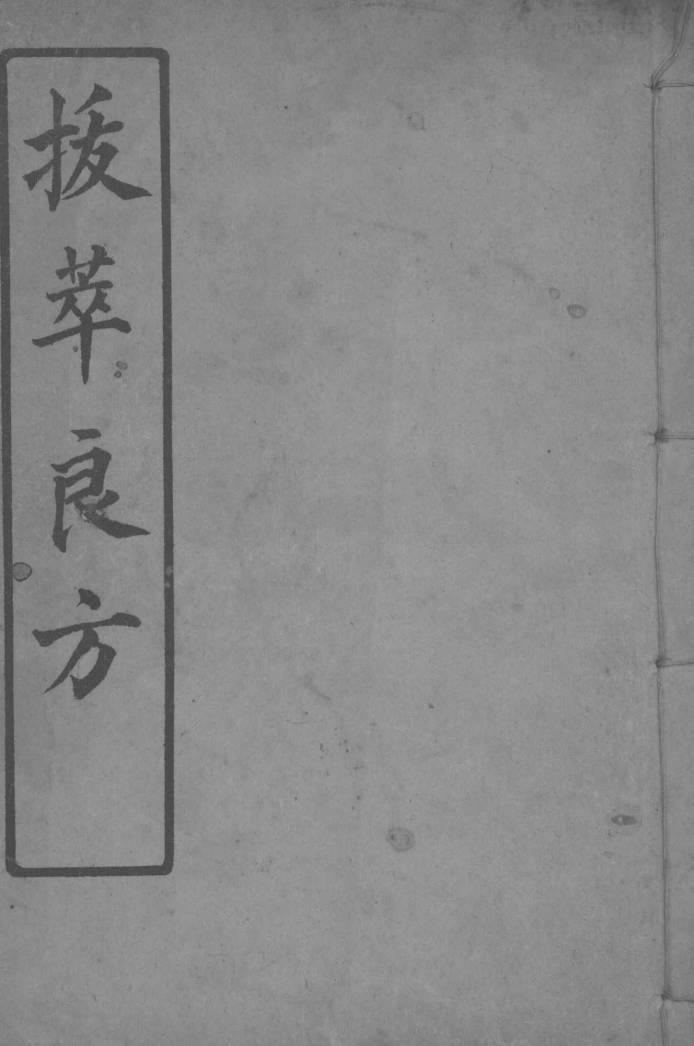 拔萃良方